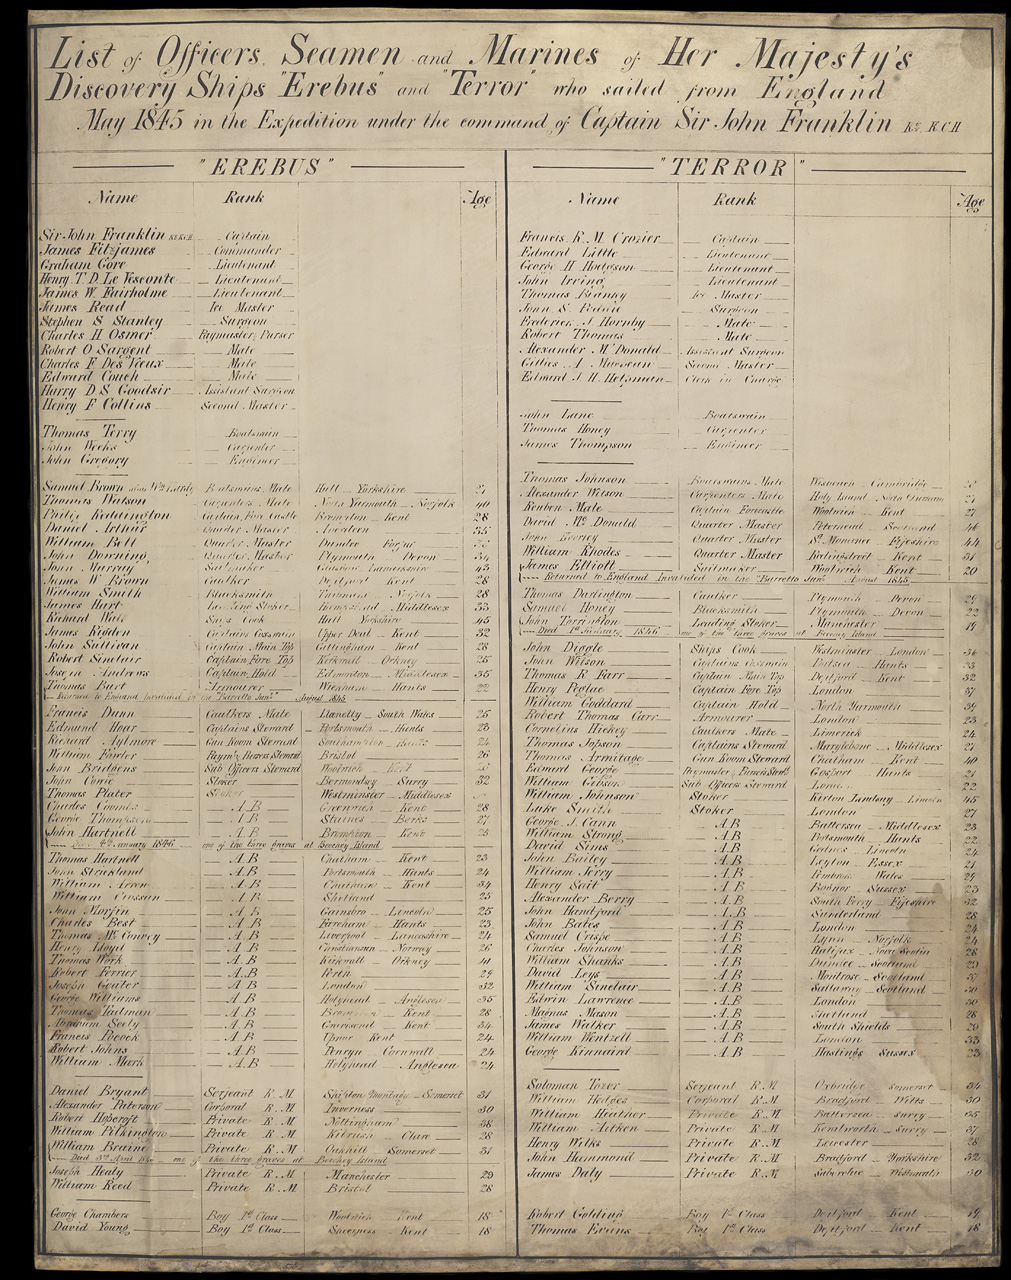 List of Officers, Seamen and Marines of Her Majesty's
Discovery Ships "Erebus" and "Terror" who sailed from England
May 1845 in the Expedition under the command of Captain Sir John Franklin Kt. K.C.H
"EREBUS"
Name Rank Age
Sir John Franklin Kt K.C.H Captain
James Fitzjames Commander
Graham Gore Lieutenant
Henry T. D. Le Vesconte Lieutenant
James W. Fairholme Lieutenant
James Read Ice Master
Stephen S Stanley Surgeon
Charles H Osmer Paymaster, Purser
Robert O Sargent Mate
Charles F Des Vieux Mate
Edward Couch Mate
Harry D S Goodsir Assistant Surgeon
Henry F Collins Second Master
Thomas Terry Boatswain
John Weeks Carpenter
John Gregory Engineer
Samuel Brown Boatswains Mate Hull Yorkshire
Thomas Watson Carpenters Mate Yarmouth Norfolk 40
Philip Reddington Captain Fore Castle Brompton Kent 28
Daniel Arthur Quarter Master Aberdeen 35
William Bell Quarter Master Dundee Forfar
John Downing Quarter Master Plymouth Devon 34
John Murray Sailmaker Glasgow Lanarkshire 43
James W Brown Caulker Deptford Kent 28
William Smith Blacksmith Norfolk 28
James Hart Leading Stoker Hampstead Middlesex 33
Richard Wall Ships Cook Hull Yorkshire 45
James Rigden Captains Coxswain Upper Deal Kent 32
John Sullivan Captain Main Top Gillingham Kent 28
Robert Sinclair Captain Fore Top Kirkwall Orkney 25
Joseph Andrews Captain Hold Edmonton Middlesex 35
Thomas Burt Armourer Wickham Hants 22
Returned to England Invalided in the "Barretto Junr" August 1845
Francis Dunn Caulkers Mate Llanelly South Wales 25
Edmund Hoar Captains Steward Portsmouth Hants 23
Richard Aylmore Gun Room Steward Southampton Hants 24
William Fowler Paym & Pursers Steward Bristol 26
John Bridgens Sub Officers Steward Woolwich Kent
John Cowie Stoker Bermondsey Surry 32
Thomas Plater Stoker Westminster Middlesex
Charles Coombs A B Greenwich Kent 28
George Thompson A B Staines Berks 27
John Hartnell A B Brompton Kent 25
Died 4th January 1846 one of the three graves at Beechey Island
Thomas Hartnell A B Chatham Kent 23
John Strickland A B Portsmouth Hants 24
William Orren A B Chatham Kent 34
William Closson A B Shetland 25
John Morfin A B Gainsbro Lincoln 25
Charles Best A B Fareham Hants 23
Thomas McConvey A B Liverpool Lancashire 24
Henry Lloyd A B Christiansun Norway 26
Thomas Work A B Kirkwall Orkney 41
Robert Ferrier A B Perth 29
Joseph Geater A B London 32
George Williams A B Holyhead Anglesea 35
Thomas Tadman A B Brompton Kent 28
Abraham Seely A B Gravesend Kent 34
Francis Pocock A B Upnor Kent 24
Robert Johns A B Penryn Cornwall 24
William Mark A B Holyhead Anglesea 24
Daniel Bryant Serjeant R.M Shepton Montague Somerset 31
Alexander Paterson Corporal R.M Inverness 30
Robert Hopcroft Private R.M Nottingham 38
William Pilkington Private R.M Kilrush Clare 28
William Braine Private R.M Oakhill Somerset 31
Died 3rd April 1846 one of the three graves at Beechey Island
Joseph Healy Private R.M Manchester 29
William Reed Private R.M Bristol 28
George Chambers Boy 1st Class Woolwich Kent 18
David Young Boy 1st Class Sheerness Kent 18
"TERROR"
Name Rank Age
Francis R.M. Crozier Captain
Edward Little Lieutenant
George H Hodgson Lieutenant
John Irving Lieutenant
Thomas Blanky Ice Master
John S. Peddie Surgeon
Frederick J Hornby Mate
Robert Thomas Mate
Alexander McDonald Assistant Surgeon
Gillies A Macbean Second Master
Edward J. H. Helpman Clerk in Charge
John Lane Boatswain
Thomas Honey Carpenter
James Thompson Engineer
Thomas Johnson Boatswains Mate Wisbeach Cambridge
Alexander Wilson Carpenters Mate Holy Island Durham 27
Reuben Male Captain Forecastle Woolwich Kent 27
David McDonald Quarter Master Peterhead Scotland 46
John Kenley Quarter Master St Monance Fifeshire 44
William Rhodes Quarter Master Ridingstreet Kent 31
James Elliott Sailmaker Woolwich Kent 20
Returned to England Invalided in the "Barretto Junr" August 1845
Thomas Darlington Caulker Plymouth Devon 29
Samuel Honey Blacksmith Plymouth Devon 22
John Torrington Leading Stoker Manchester 19
Died 1st January 1846 one of the three graves at Beechey Island
John Diggle Ships Cook Westminster London 36
John Wilson Captains Coxswain Portsea Hants 33
Thomas R Farr Captain Main Top Deptford Kent 32
Henry Peglar Captain Fore Top London 37
William Goddard Captain Hold North Yarmouth 39
Robert Thomas Carr Armourer London 23
Cornelius Hickey Caulkers Mate Limerick 24
Thomas Jopson Captains Steward Marylebone Middlesex 27
Thomas Armitage Gun Room Steward Chatham Kent 40
Edward George Gosport Hants
William Gibson Sub Officers Steward London 22
William Johnson Stoker Kirton Lindsay Lincoln 45
Luke Smith Stoker London 27
George J. Cann A B Battersea Middlesex 23
William Strong A B Portsmouth Hants 22
David Sims A B Lincoln 24
John Bailey A B Leyton Essex 21
William Jerry A B Pembroke Wales 29
Henry Sait A B Bognor Sussex 23
Alexander Berry A B South Ferry Fifeshire 32
John Handford A B Sunderland 28
John Bates A B London 24
Samuel Crispe A B Lynn Norfolk 24
Charles Johnson A B Halifax Nova Scotia 28
William Shanks A B Dundee Scotland 29
David Leys A B Montrose Scotland 37
William Sinclair A B Galloway Scotland 30
Edwin Lawrence A B London 30
Magnus Mason A B Shetland 28
James Walker A B South Shields 29
William Wentzell A B London 33
George Kinnaird A B Hastings Sussex 23
Soloman Tozer Serjeant R.M Axbridge Somerset 34
William Hedges Corporal R.M Bradford Wilts 30
William Heather Private R.M Battersea Surry 35
William Aitken Private R.M Kenilworth Surry 37
Henry Wilks Private R.M Leicester 28
John Hammond Private R.M Bradford Yorkshire 32
James Daly Private R.M Westmeath 30
Robert Golding Boy 1st Class Deptford Kent 19
Thomas Evans Boy 1st Class Deptford Kent 18